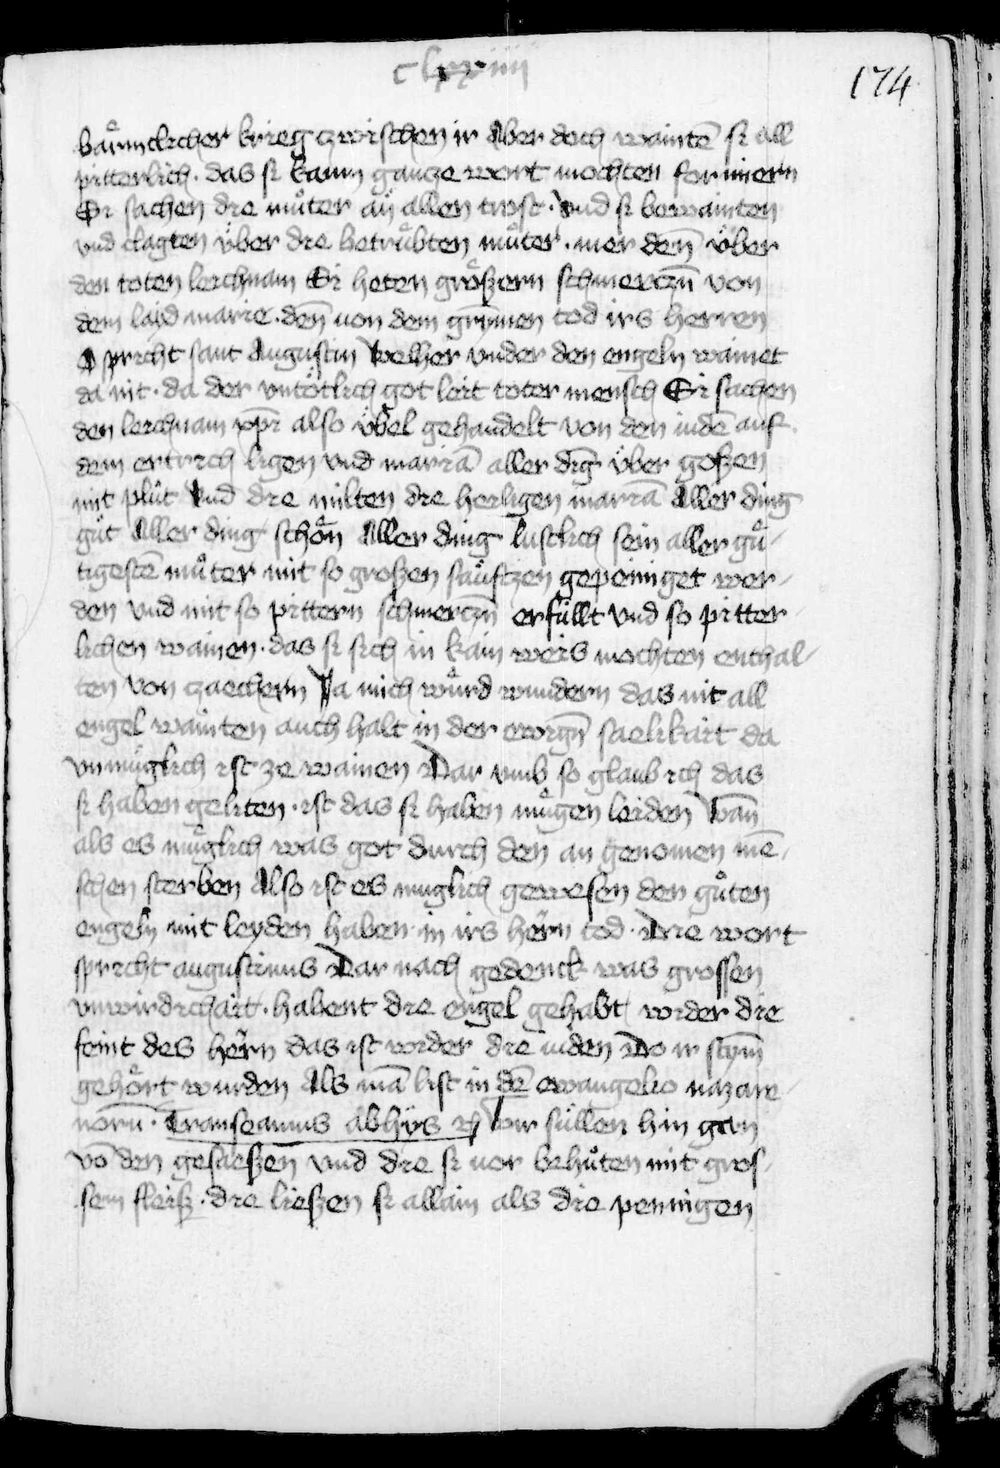 clxxiiii
174
bärmclicher krieg zwischen ir Aber doch wainte͂ si all
pitterlich · das si kaum gancze wort mochten formiern
Si sachen die mu͂ter an allen trost · Vnd si bewainten
vnd clagten über die betrübten mu͂ter · mer den͂ über
den toten leichnam Si heten größern schmerczn͂ von
dem laid marie · den͂ uon dem grymen tod irs herren
O spricht sant Augustin Welher vnder den engeln wainet
da nit · da der vntötlich got leit toter mensch Si sachen
den leichnam xp̄i also übel gehandelt von den iude͂ auf
dem ertrich ligen vnd maria͂ aller dig͂ über goßen
mit plůt Vnd die milten die heiligen maria͂ Aller ding
gůt Aller ding schön Aller ding lustlich sein aller gů-
tigeste͂ můter mit so großen säufczen gepeiniget wer-
den vnd mit so pittern schmerczn͂ erfüllt vnd so pitter-
lichen wainen · das si sich in kain weis mochten enthal-
ten von zaechern Ja mich würd wundern das nit all
engel wainten auch halt in der ewign͂ saelikait da
vnmüglich ist ze wainen Dar vmb so glaub ich das
si haben geliten · ist das si haben mügen leiden Wan͂
als es müglich was got durch den an genomen me͂-
schen sterben Also ist es muglich gewesen den gůten
engeln mit leyden haben in irs her͂n tod · Die wort
spricht augustinus Dar nach gedenck was grossen
vnwirdichait · habent die engel gehabt wider die
feint des her͂n das ist wider die iuden Do ir stym͂
gehört wurden Als ma͂ list in de͂ ewangelio nazare-
noru͂ · Transeamus abhijs Wir süllen hin gan
vo͂ den gesaeßen vnd die si uor behůten mit gros-
sem fleiß · die ließen si allain als die peningen